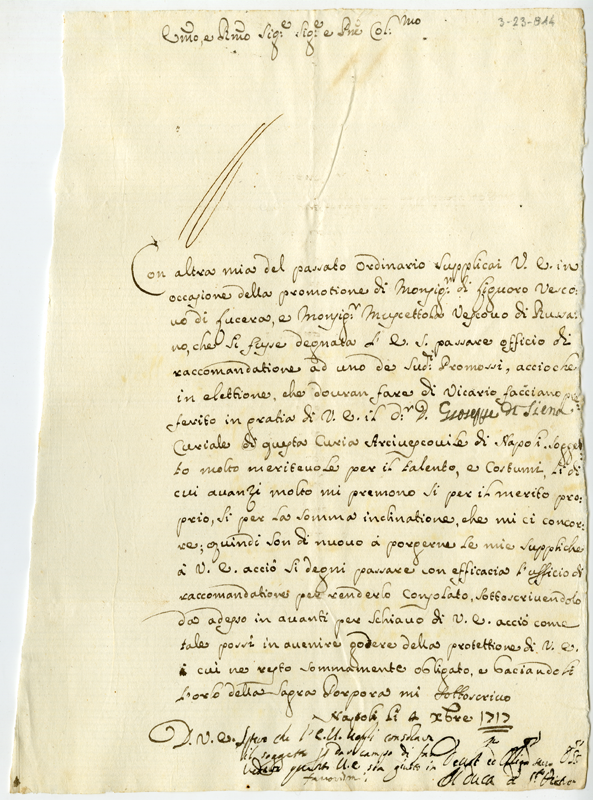 3-23-814
Emo, e Rmo Sig.e Sig.e e Pne Col:mo
Con altra mia del passato ordinario supplicai V. E. in
occasione della promotione di Monsig.r di liguoro Vesco:
vo di lucera, e Monsig.r Muscettola Vescovo di Russa:
no, che si fusse degnata l'E. S. passare officio di
raccomandatione ad uno de sud.i Promossi, acciò che
in elettione, che douran fare di Vicario facciano pre
ferito in gratia di V. E. il d.r D. Gioseppe di Siena
Curiale di questa Curia Arcivescovile di Napoli, sogget
to molto meritevole per il talento, e Costumi, li di
cui avanzi molto mi premono si per il merito pro:
prio, si per la somma inclinatione, che mi ci concor:
re; quindi son di nuovo à porgerne le mie suppliche
à V. E. acciò si degni passare con efficacia l'ufficio di
raccomandatione per renderlo Consolato, sottoscrivendolo
da adesso in avanti per schiavo di V. E. acciò come
tale possi in avenire godere della protettione di V. E.
à cui ne resto sommamente obligato, e baciandoli
l'orlo della Sagra Porpora mi sottoscrivo
Napoli li 4 xbre 1717
D. V. E. Spero che l'E. V. vogli consolar
il soggetto
questo V. E. sia giusto in
favorirmi
Il Duca di